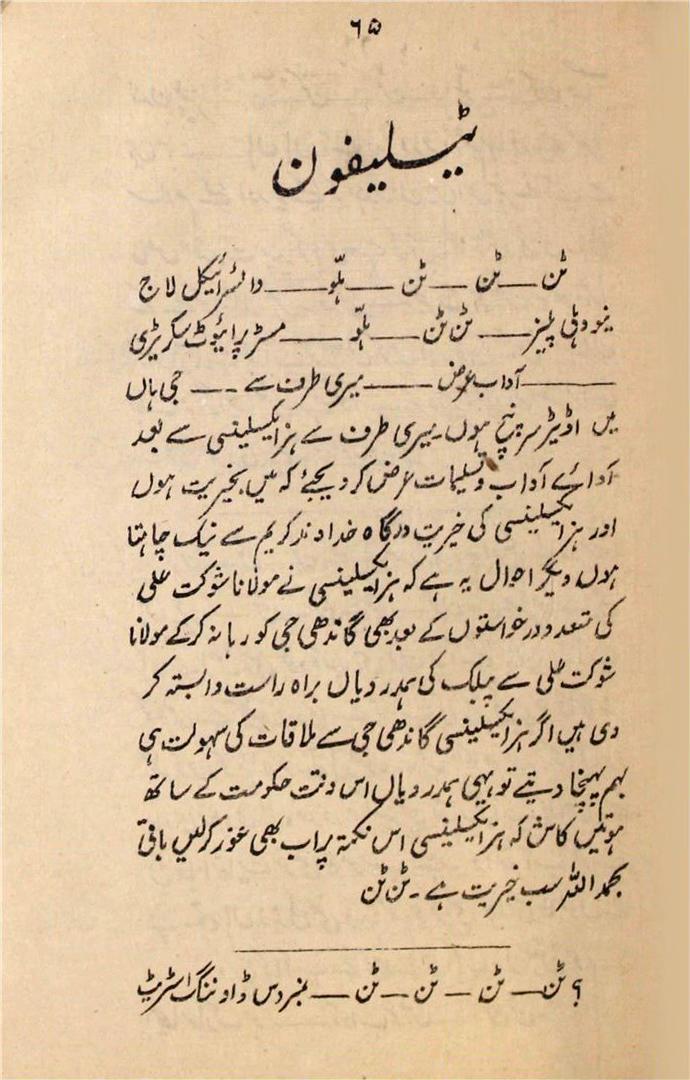 ۶۵
ٹیلیفون
ٹن ــــ ٹن ــــ ٹن ــــ ہلّو ــــ وائسرائیکل لاج
نیو دہلی پلیز ــــ ٹن ٹن ــــ ہلّو ــــ مسٹر پرائیوٹ سکریٹری
ــــ آداب عرض ــــ میری طرف سے ــــ جی ہاں
میں اڈیٹر سرپنچ ہوں۔ میری طرف سے ہزایکسیلینسی سے بعد
آدائے آداب و تسلیمات عرض کر دیجئے کہ میں بخیریت ہوں
اور ہزایکسیلینسی کی خیریت درگاہ خداوند کریم سے نیک چاہتا
ہوں دیگر احوال یہ ہے کہ ہزایکسیلینسی نے مولانا شوکت علی
کی متعدد درخواستوں کے بعد بھی گاندھی جی کو رہا نہ کر کے مولانا
شوکت علی سے پبلک کی ہمدردیاں براہ راست وابستہ کر
دی ہیں اگر ہزایکسیلینسی گاندھی جی سے ملاقات کی سہولت ہی
بہم پہنچا دیتے تو یہی ہمدردیاں اس وقت حکومت کے ساتھ
ہوتیں کاش کہ ہزایکسیلینسی اس نکمتہ پر اب بھی غور کر لیں باقی
بحمد اللہ سب خیریت ہے۔ ٹن ٹن
؟ ٹن ــــ ٹن ــــ ٹن ــــ ٹن ــــ نمبر دس ڈاوننگ اسٹریٹ